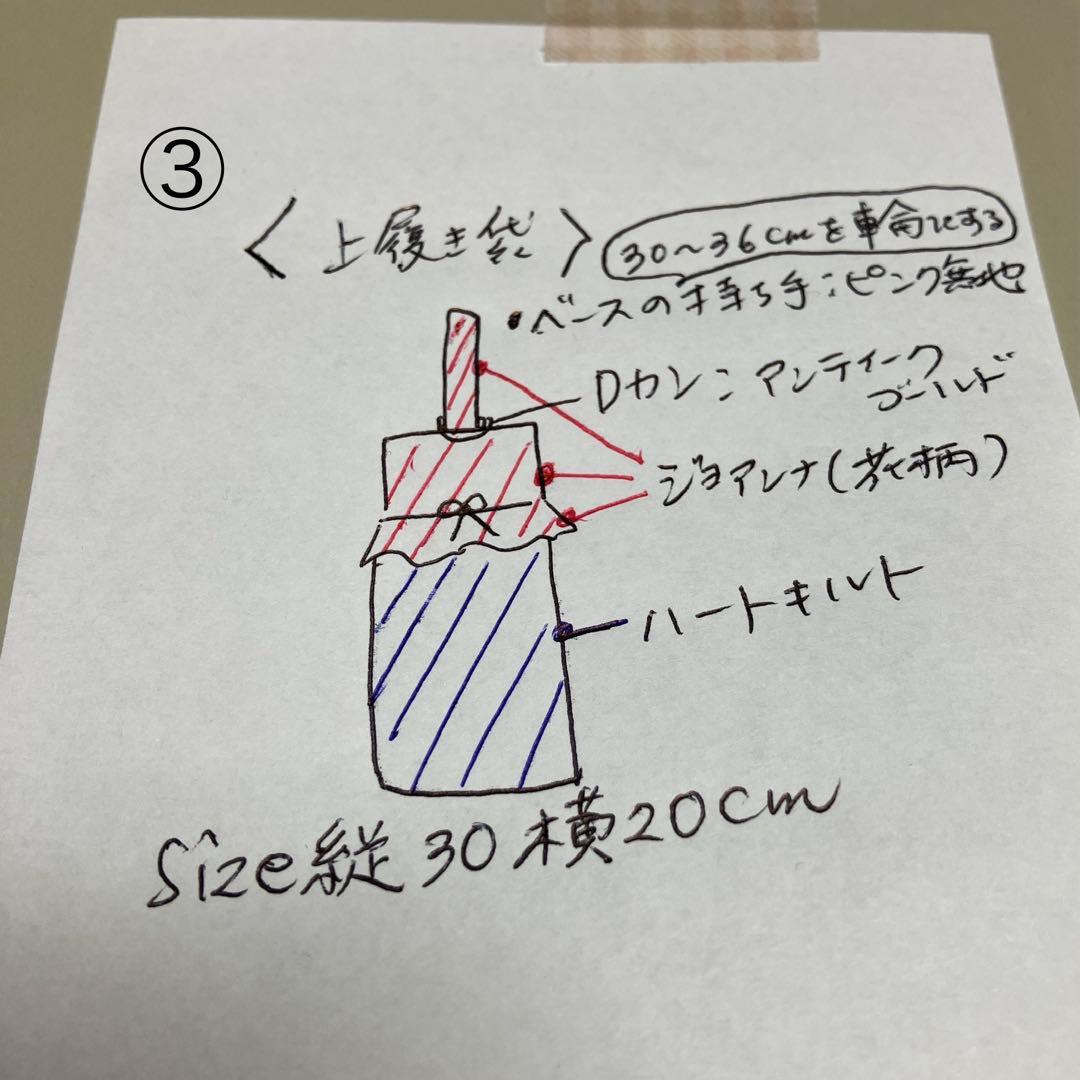 ③
〈上履き袋〉
30〜36cmを輪にする
・ベースの持ち手:ピンク無地
Dカン:アンティーク
ゴールド
ジョアンナ(花柄)
ハートキルト
Size 縦30横20cm